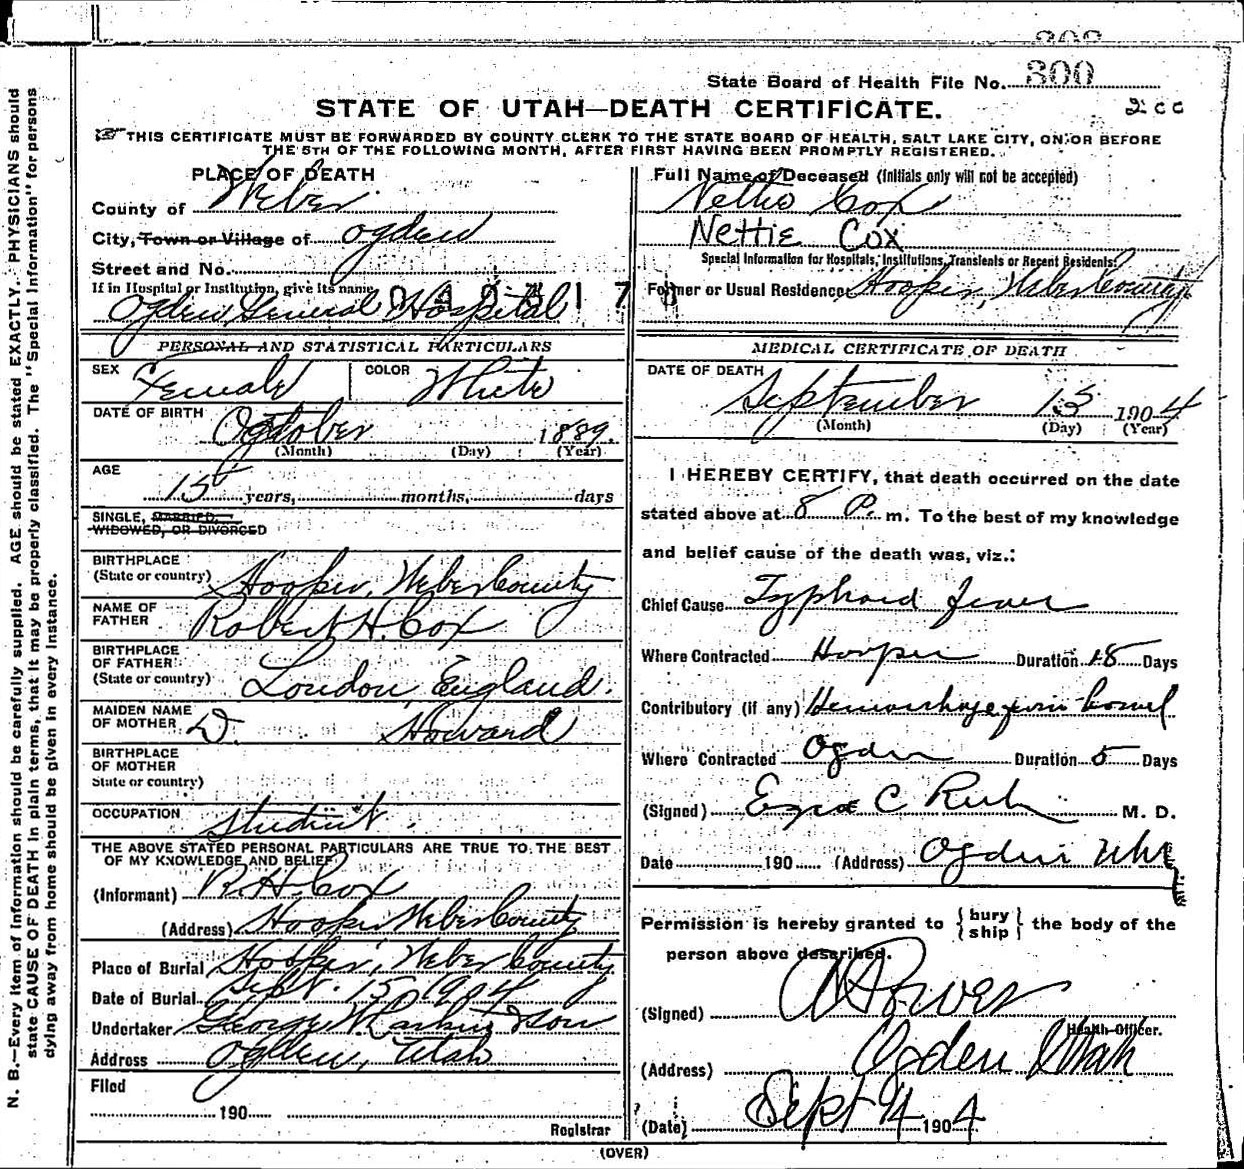 300
State Board of Health File No. 300
STATE OF UTAH—DEATH CERTIFICATE.
2cc
THIS CERTIFICATE MUST BE FORWARDED BY COUNTY CLERK TO THE STATE BOARD OF HEALTH, SALT LAKE CITY, ON OR BEFORE
THE 5TH OF THE FOLLOWING MONTH, AFTER FIRST HAVING BEEN PROMPTLY REGISTERED.
PLACE OF DEATH
County of Weber
City, Town or Village of Ogden
Street and No.
If in Hospital or Institution, give its name
Ogden General Hospital
PERSONAL AND STATISTICAL PARTICULARS
SEX Female COLOR White
DATE OF BIRTH October 1889.
(Month) (Day) (Year)
AGE
15 years, months, days
SINGLE, MARRIED,
WIDOWED, OR DIVORCED
BIRTHPLACE
(State or country) Hooper, Weber County
NAME OF
FATHER Robert H. Cox
BIRTHPLACE
OF FATHER
(State or country) London, England.
MAIDEN NAME
OF MOTHER D. Howard
BIRTHPLACE
OF MOTHER
State or country)
OCCUPATION Student.
THE ABOVE STATED PERSONAL PARTICULARS ARE TRUE TO THE BEST
OF MY KNOWLEDGE AND BELIEF
(Informant) R. H. Cox
(Address) Hooper Weber County
Place of Burial Hooper, Weber County
Date of Burial Sept. 15, 1904
Undertaker George W. Larkin & Son
Address Ogden, Utah
Filed
190
Registrar
Full Name of Deceased (Initials only will not be accepted)
Nettie Cox
Nettie Cox
Special Information for Hospitals, Institutions, Transients or Recent Residents:
Former or Usual Residence: Hooper, Weber County
MEDICAL CERTIFICATE OF DEATH
DATE OF DEATH
September 13 1904
(Month) (Day) (Year)
I HEREBY CERTIFY, that death occurred on the date
stated above at 8 P. m. To the best of my knowledge
and belief cause of the death was, viz.:
Chief Cause Typhoid fever
Where Contracted Hooper Duration 18 Days
Contributory (if any) Hemorrhage from bowel
Where Contracted Ogden Duration 5 Days
(Signed) Ezra C Rich M. D.
Date 190 (Address) Ogden Utah
Permission is hereby granted to {bury
ship} the body of the
person above described.
(Signed)
Health Officer.
(Address) Ogden Utah
(Date) Sept 14 1904
(OVER)
N. B.—Every item of information should be carefully supplied. AGE should be stated EXACTLY. PHYSICIANS should
state CAUSE OF DEATH in plain terms, that it may be properly classified. The "Special Information" for persons
dying away from home should be given in every instance.